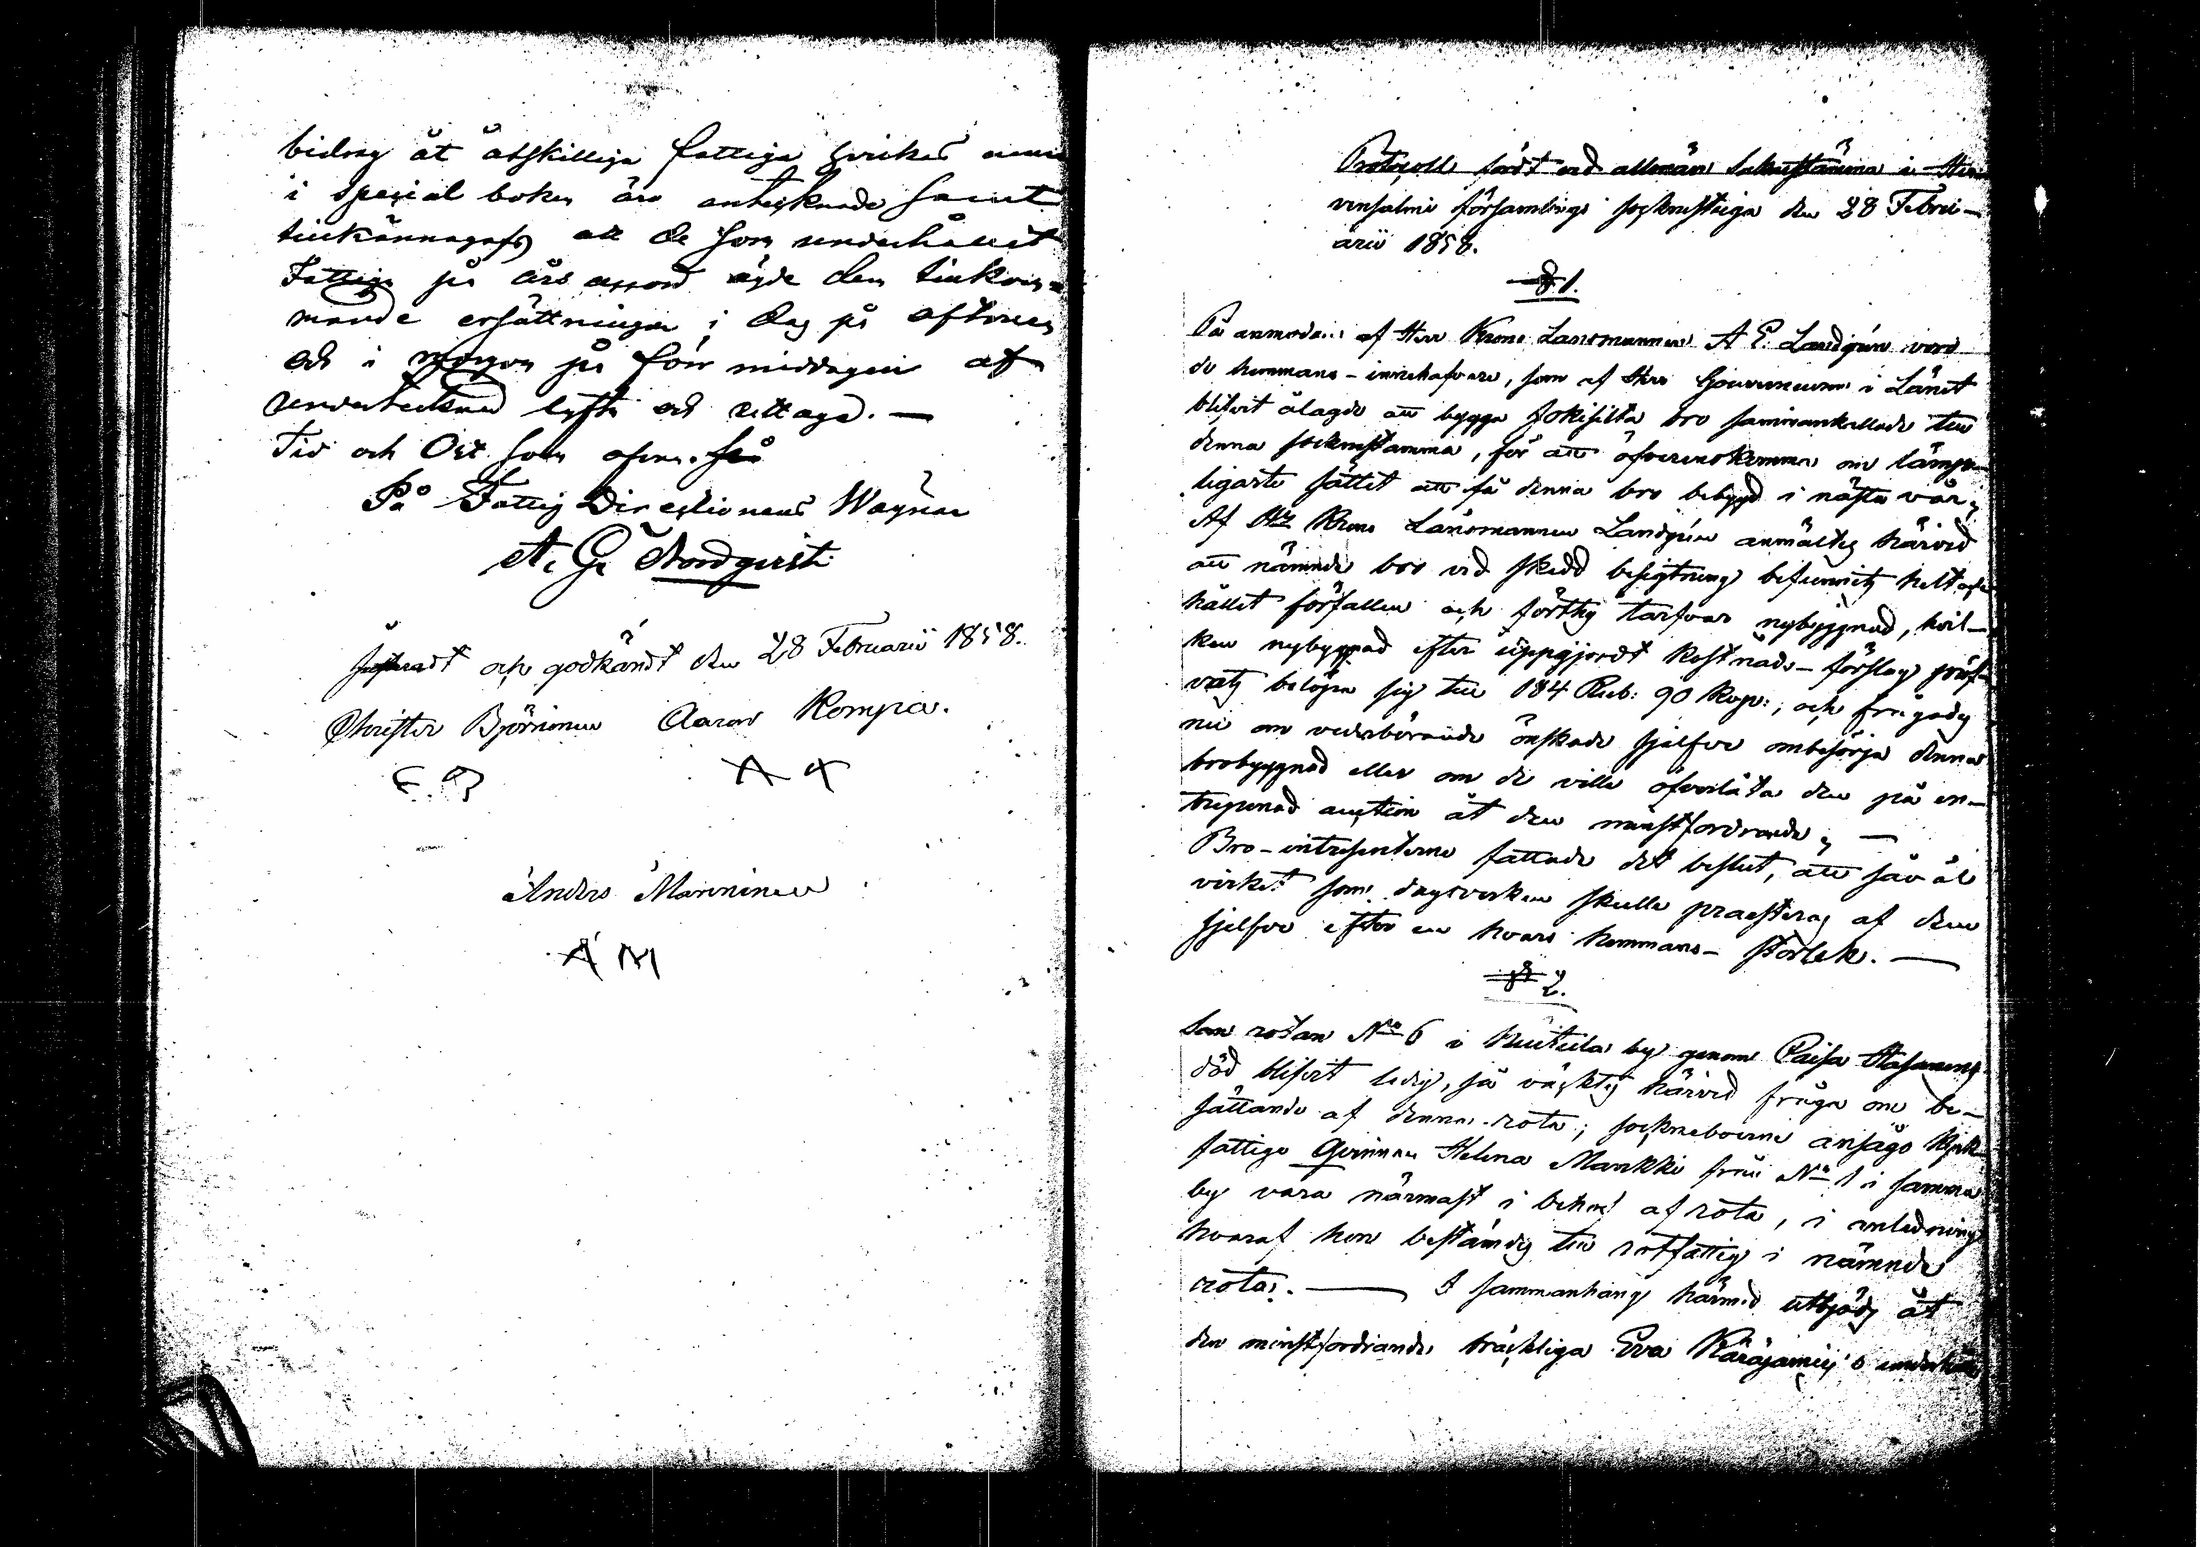 bidrag åt åtskilliga fattiga hvilkas namn
i special boken äro antecknade samt
tillkännagafs att de som underhållit
Fattiga på års accord ägde den tillkom-
mande ersättningen i dag på aftonen
och i morgon på för middagen af
undertecknad lyfta och uttaga. —
Tid och Ort som ofvan.
På Fattig Directionens Wägnar
A. G. Nordqvist
Justeradt och godkändt den 28 Februarii 1858.
Christer Björninen Aaron Kompa.
C. B A K
Anders Manninen
A M
Protocoll fördt vid allmän Sockenstämma i
vensalmi församlings sockenstuga den 28 Febru-
arii 1858.
§ 1.
På anmodan af Herr Krono Länsmannen A E. Landgrén vord
de hemmans-innehafvare, som af Herr Gouverneuren i Länet
blifvit ålagde att bygga Jokisilta bro sammankallade till
denna sockenstämma, för att öfverenskomma om lämp-
ligaste sättet att få denna bro bebygd i nästa vår;
Af Hr Krono Länsmannen Landgrén anmältes härvid
att nämnde bro vid skedd besigtning befunnits helt och
hållet förfallen och förthy tarfvar nybyggnad, hvil-
ken nybyggnad efter uppgjordt kostnads-förslag pröf-
vats belöpa sig till 184 Rub: 90 Kop:, och frågades
nu om vederbörande önskade sjelfve ombesörja denna
brobyggnad eller om de ville öfverlåta den på en-
treprenad auction åt den minstfordrande; —
Bro-intressenterne fattade det beslut, att så väl
virket som dagsverken skulle præsteras af dem
sjelfve efter en hvars hemmans-storlek. —
§ 2.
Som rotan No 6 i Kuutila by genom Caisa
död blifvit ledig, så väcktes härvid fråga om be-
sättande af denna rota; sockneboerne ansågo
fattige Qvinnan Helena Markki från No 1 i samma
by vara närmast i behof af rota, i anledning
hvaraf hon bestämdes till rotfattig i nämnde
rota. — I sammanhang härmed utbjöds åt
den minstfordrande bräckliga Eva